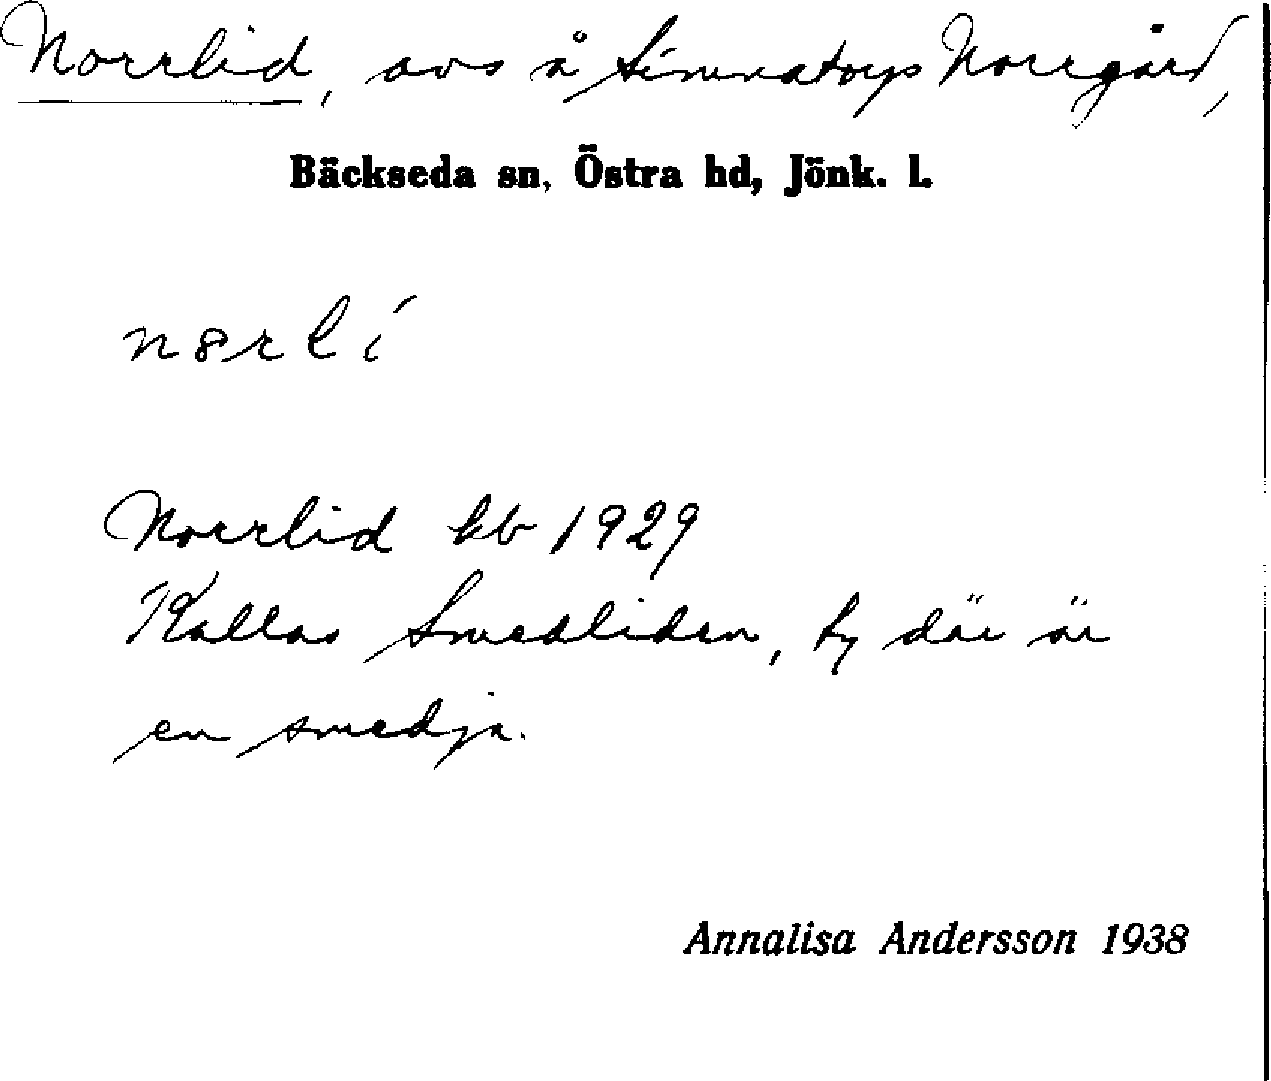 Norrlid, avs å Simnatorps Norrgård,
Bäckseda sn, Östra hd, Jönk. l.
n8rlí
Norrlid kb 1929
Kallas Smedliden, ty där är
en smedja.
Annalisa Andersson 1938